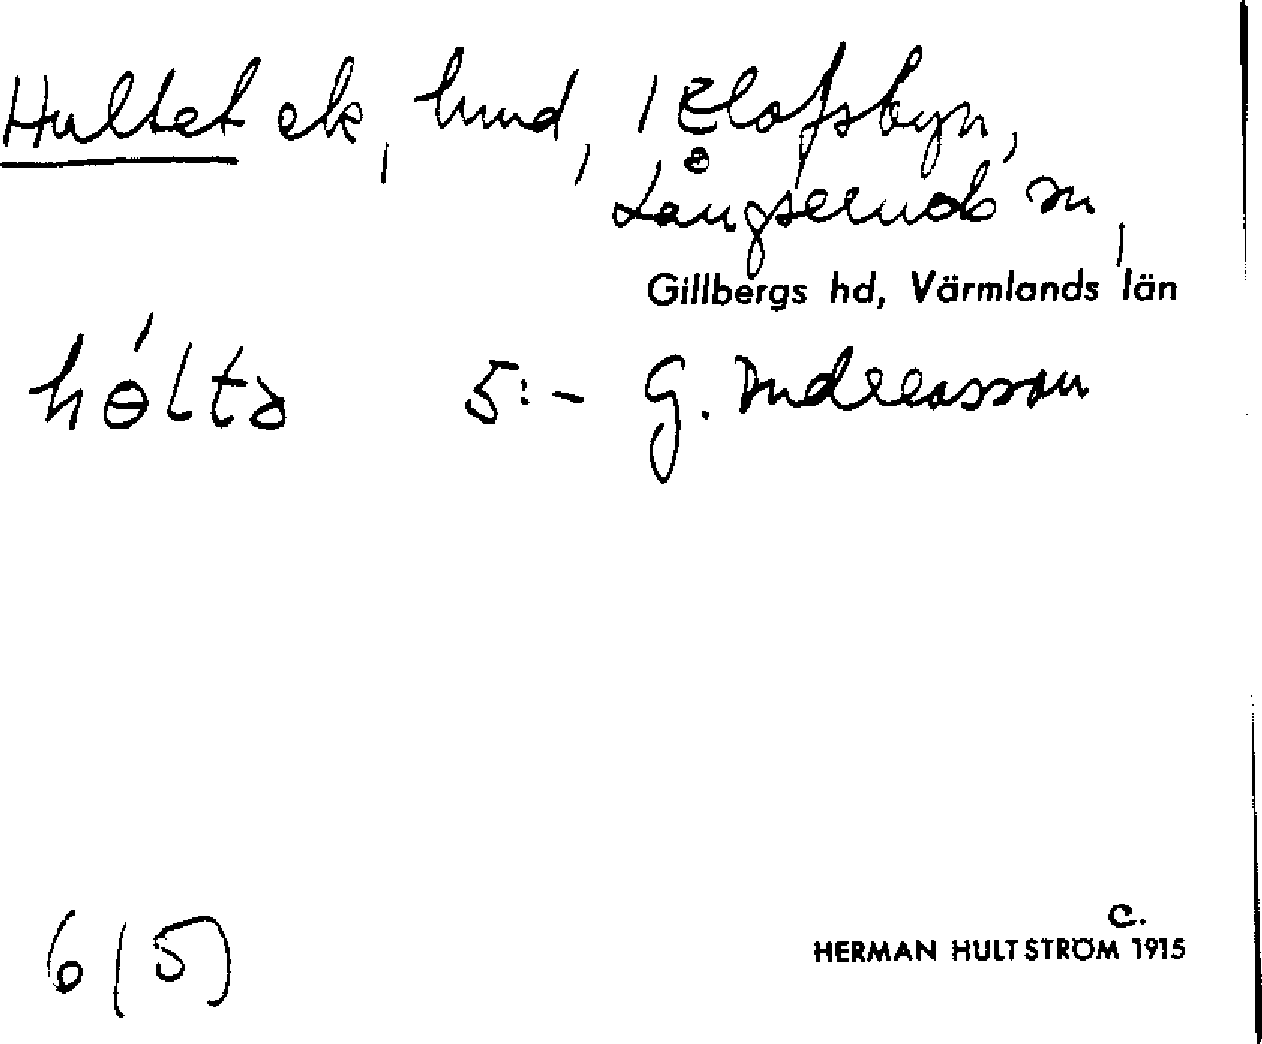 Hultet ek, lund, 1 Elofsbyn,
Långserud sn,
Gillbergs hd, Värmlands län
hɵ́ltə 5:- G. Andreasson
6(5)
c.
HERMAN HULTSTRÖM 1915